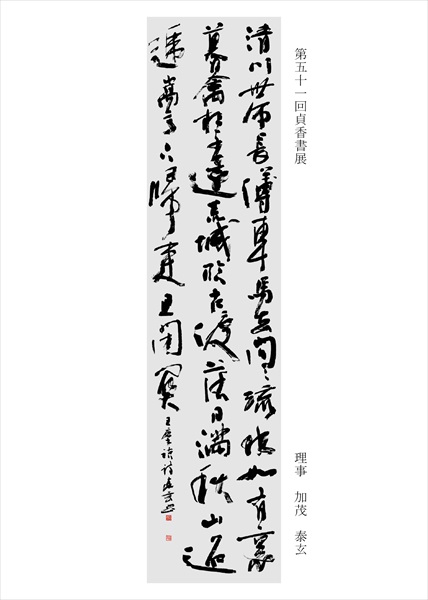 第五十一回貞香書展
理事　加茂　泰玄
清川帯長薄車馬去閑々流水如有意
暮禽相与還荒城臨古渡落日満秋山迢
逓嵩高下帰来且閉関 王摩詰詩泰玄